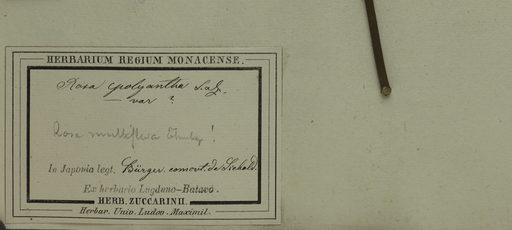 HERBARIUM REGIUM MONACENSE.
Rosa polyantha S. & Z.
— var ?
Rosa multiflora Thunbg !
In Japonia legt. Bürger comort. de Siebold.
Ex herbario Lugduno-Batavo.
HERB. ZUCCARINII.
Herbar. Univ. Ludov. Maximil.